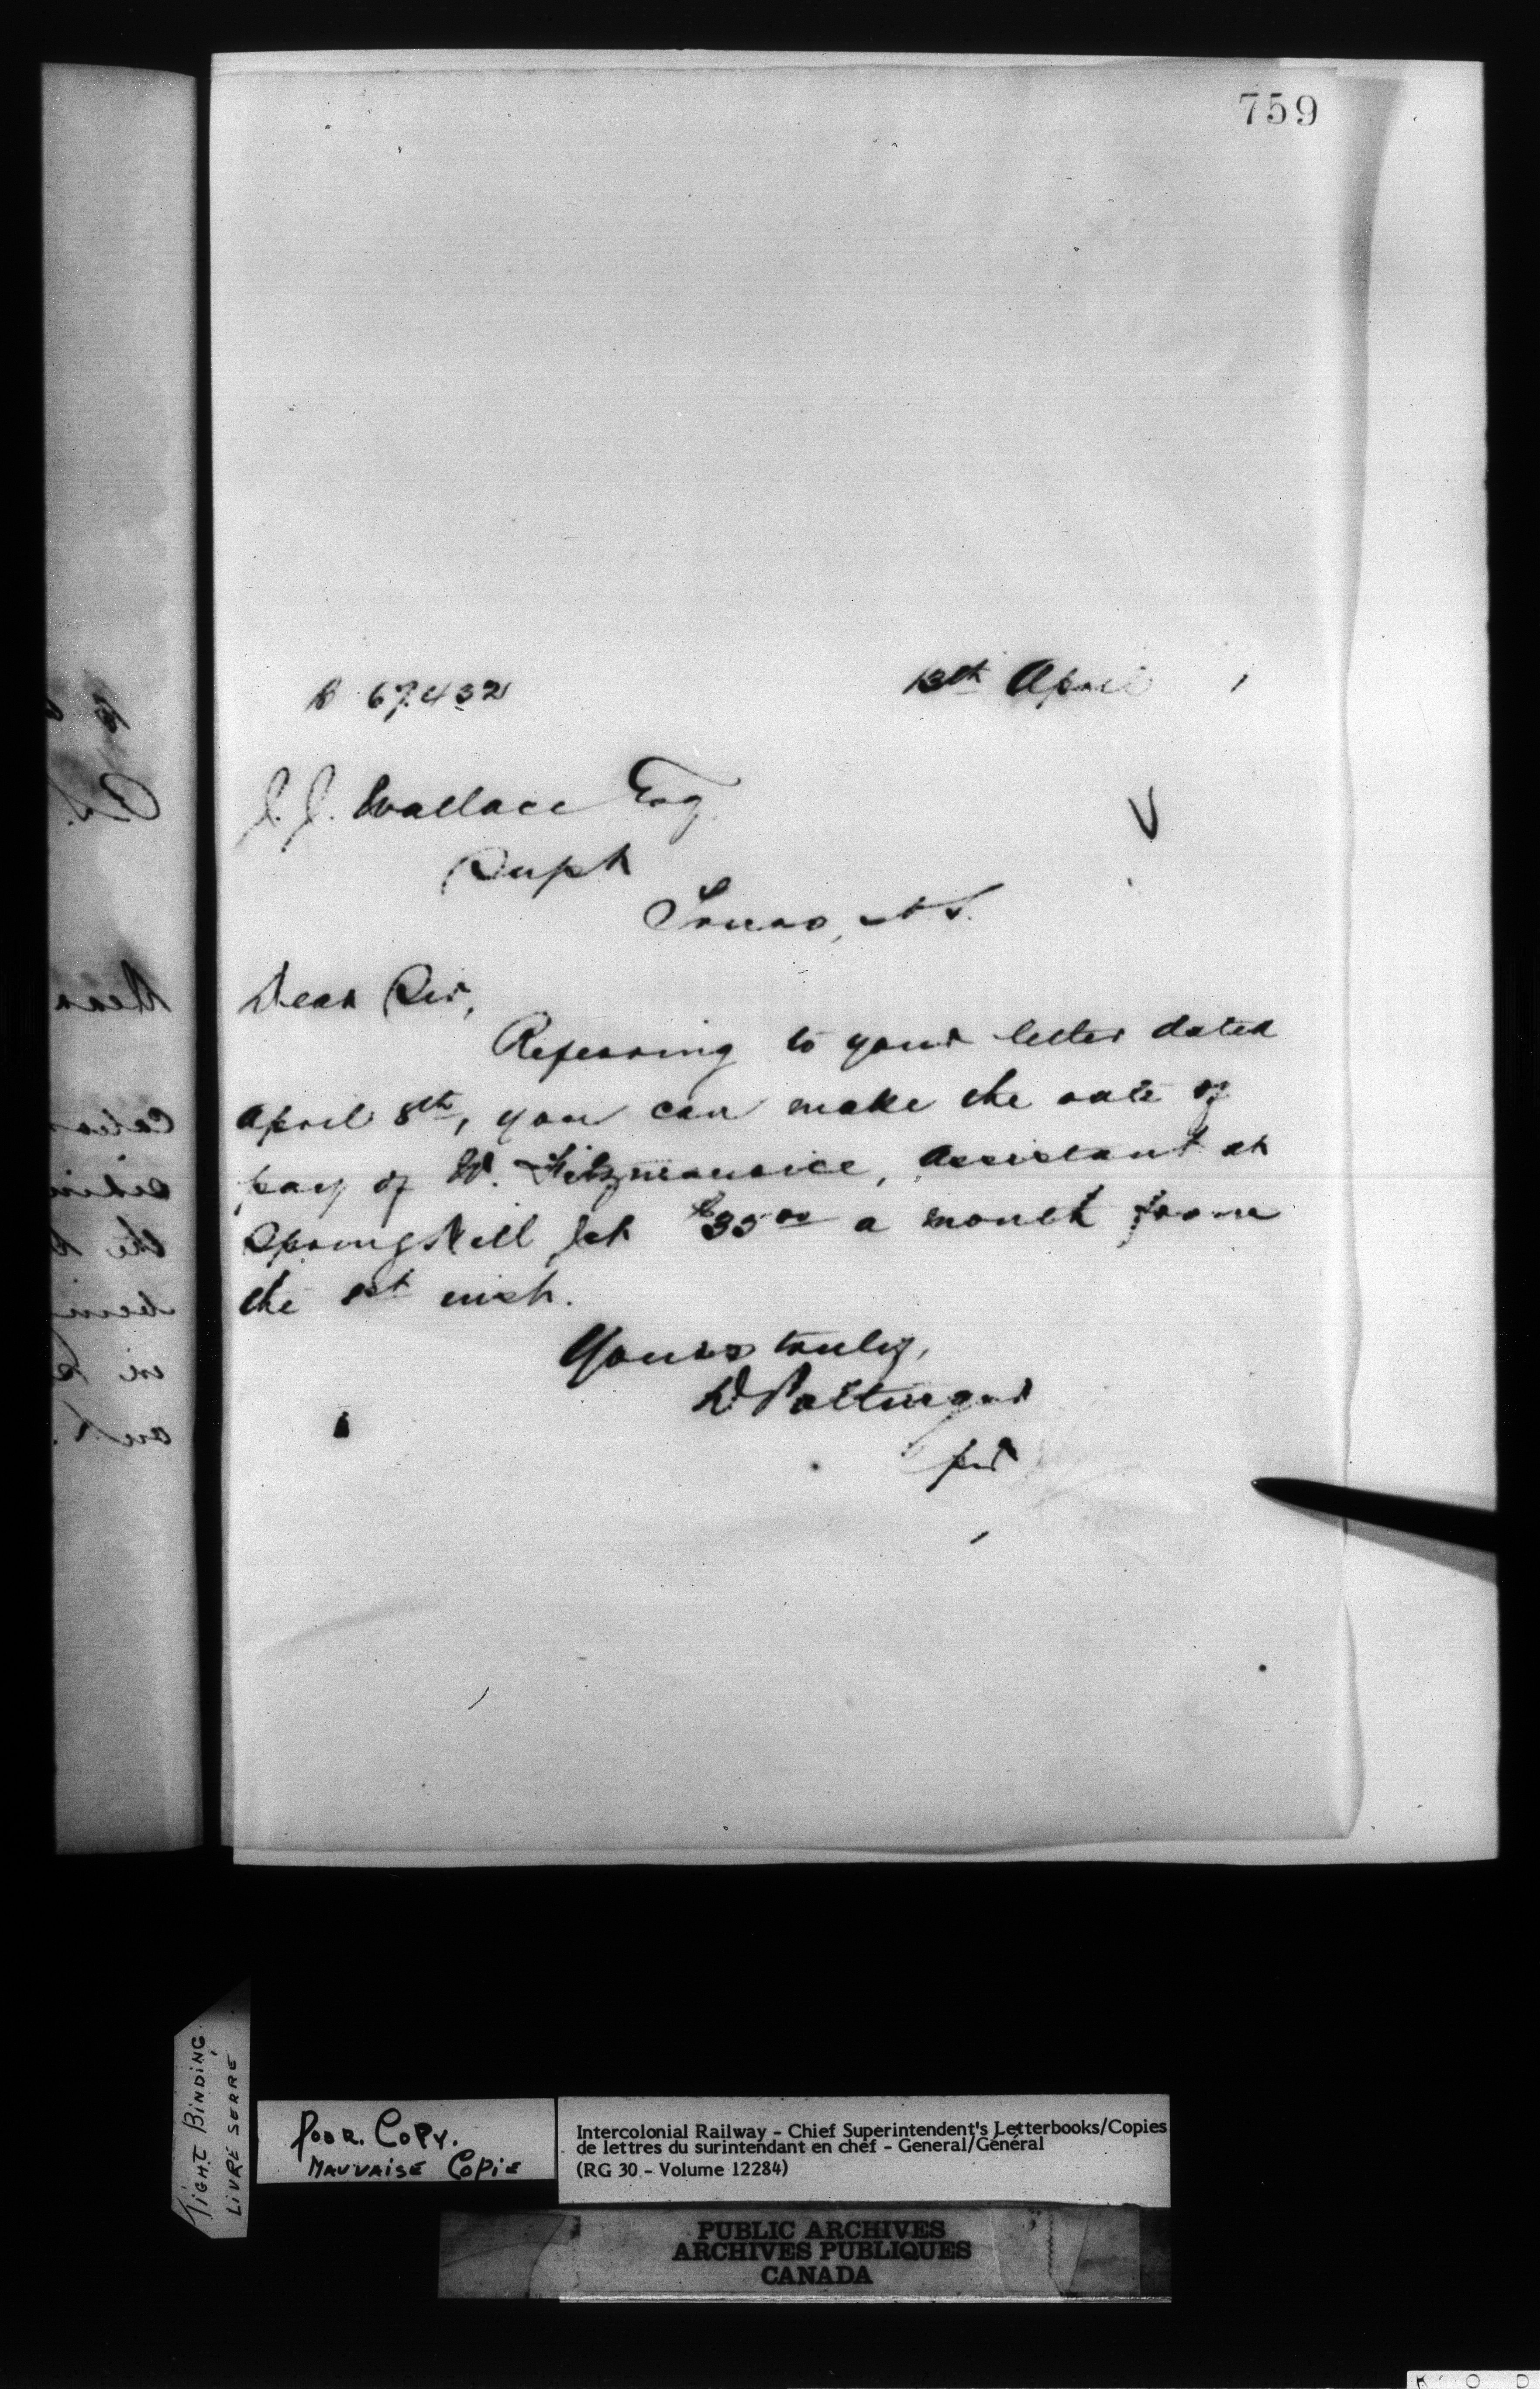 759
B 67432
13th April
J. J. Wallace Esq.
Supt
Truro, N.S.
Dear Sir,
Referring to your letter dated
April 8th, you can make the rate of
pay of W. Fitzmaurice, Assistant at
Spring Hill Jct $35.00 a month from
the 1st inst.
Yours truly,
D Pottinger
per
TIGHT BINDING
LIVRE SERRE
POOR COPY.
MAUVAISE COPIE
Intercolonial Railway - Chief Superintendent's Letterbooks/Copies
de lettres du surintendant en chef - General/Général
(RG 30 - Volume 12284)
PUBLIC ARCHIVES
ARCHIVES PUBLIQUES
CANADA